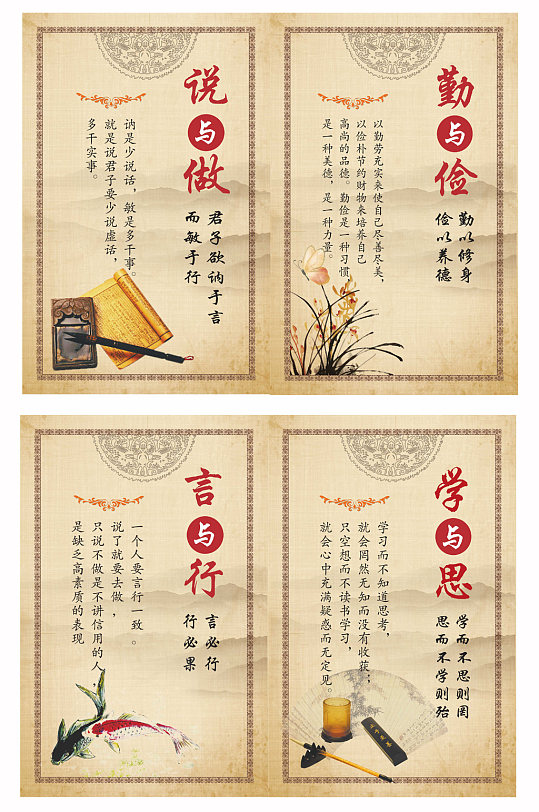 说与做
君子欲讷于言
而敏于行
讷是少说话，敏是多干事。
就是说君子要少说虚话，
多干实事。
勤与俭
勤以修身
俭以养德
以勤劳充实来使自己尽善尽美，
以俭朴节约财物来培养自己
高尚的品德。勤俭是一种习惯，
是一种美德，是一种力量。
言与行
言必行
行必果
一个人要言行一致。
说了就要去做，
只说不做是不讲信用的人，
是缺乏高素质的表现
学与思
学而不思则罔
思而不学则殆
学习而不知道思考，
就会罔然无知而没有收获；
只空想而不读书学习，
就会心中充满疑惑而无定见。